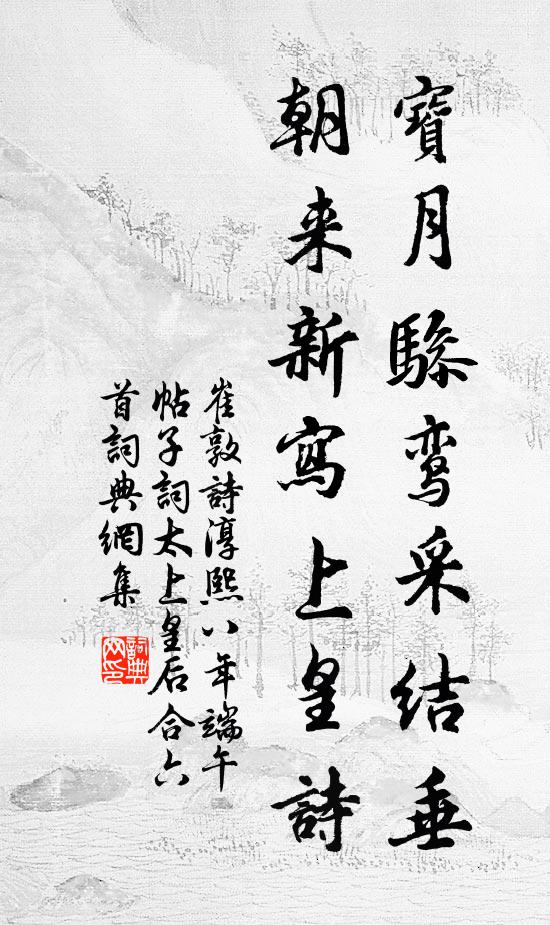 寶月驂鸾采结垂
朝来新寫上皇詩
崔敦詩淳熙八年端午
帖子詞太上皇后合六
首詞典網集
詞典
网印